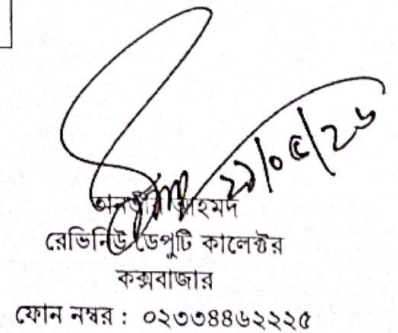 ২১/০৫/২৬
আহমদ
রেভিনিউ ডেপুটি কালেক্টর
কক্সবাজার
ফোন নম্বর : ০২৩৩৪৪৬২২২৫